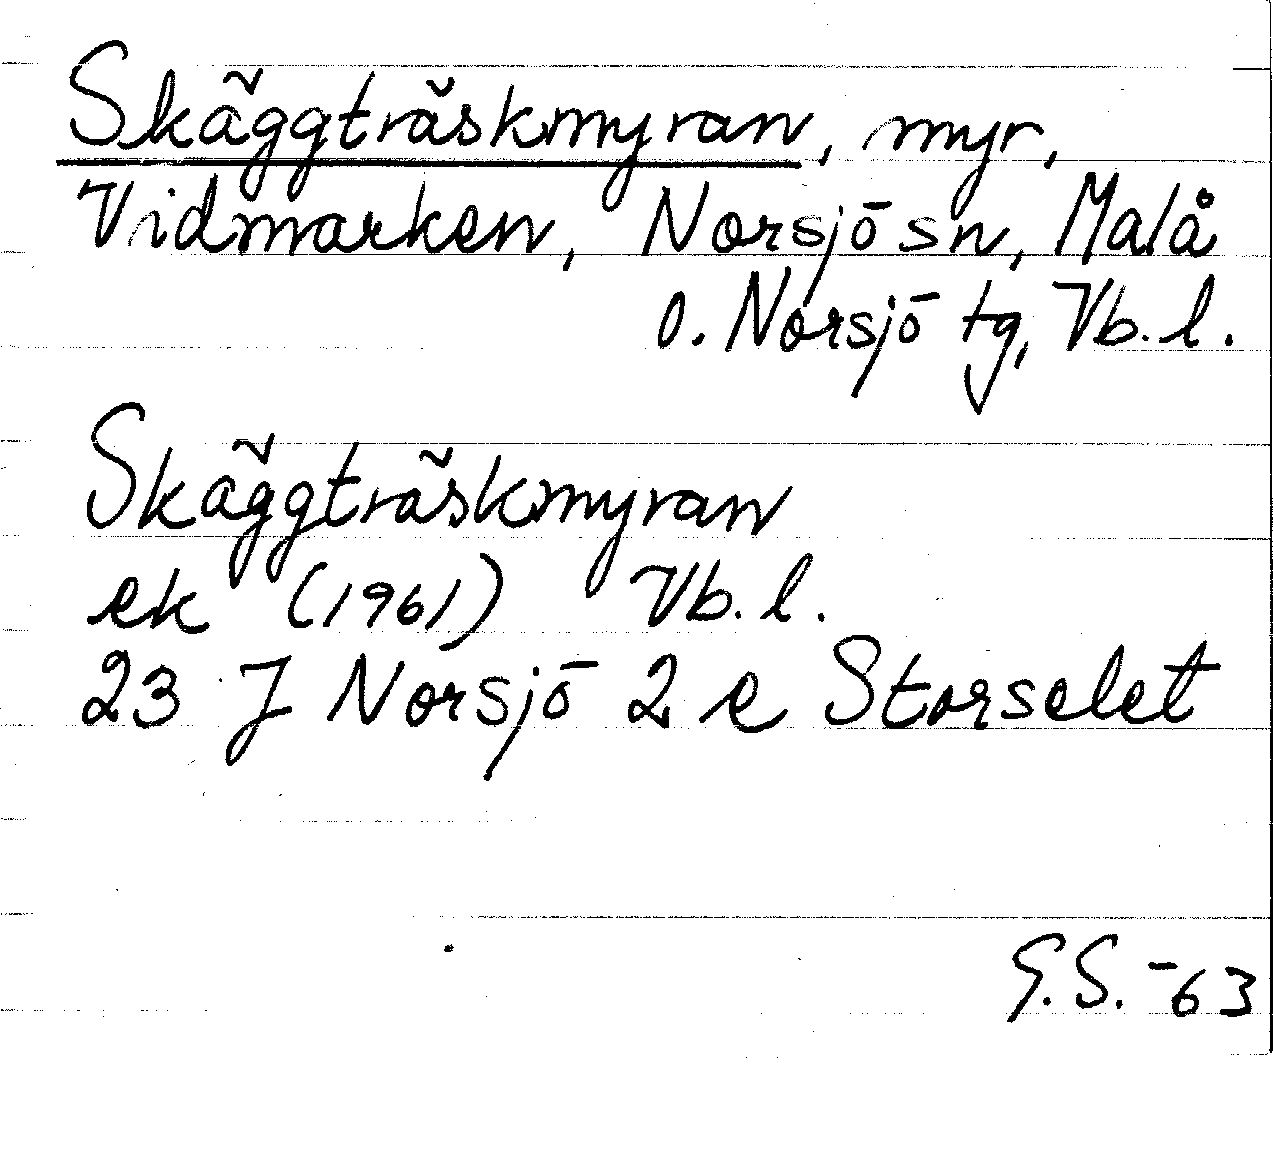 Skäggträskmyran, myr,
Vidmarken, Norsjö sn, Malå
o. Norsjö tg, Vb. l.
Skäggträskmyran
ek (1961) Vb. l.
23 J Norsjö 2 e Storselet
G.S. -63